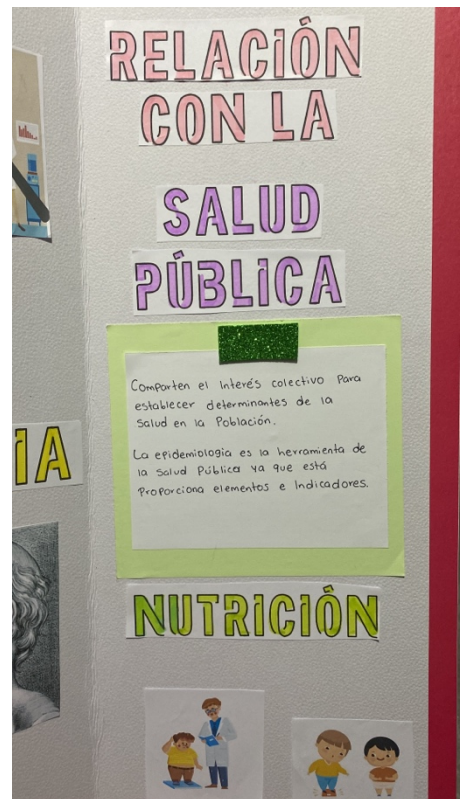 RELACIÓN
CON LA
SALUD
PÚBLICA
Comparten el Interés colectivo Para
establecer determinantes de la
Salud en la Población.
La epidemiologia es la herramienta de
la Salud Pública ya que está
Proporciona elementos e Indicadores.
IA
NUTRICIÓN